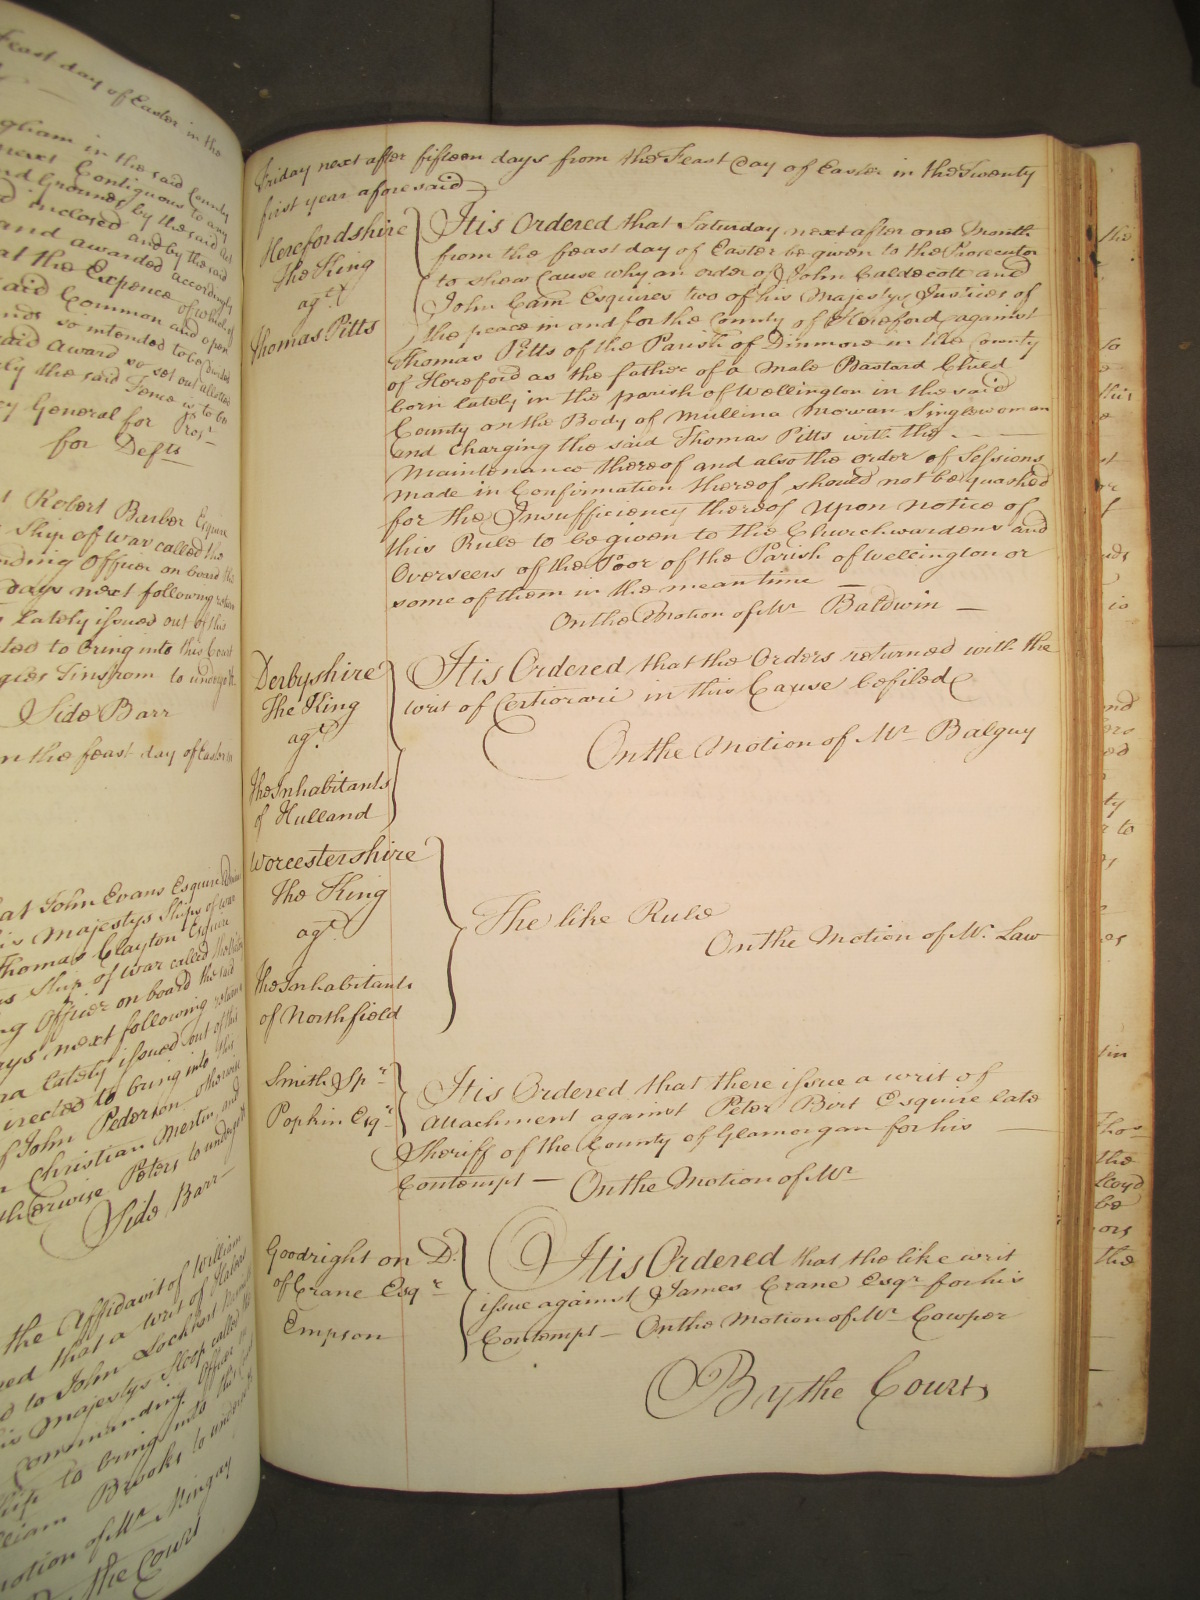 Feast day of Easter in the
gham in the said County
next Contiguous to any
nd Grounds by the said Act
d inclosed and by the said
and awarded accordingly
at the Expence of which of
said Common and open
nds so intended to be
said Award so set out allotted
ly the said Fence is to be
ey General for Pros.r
for Defts
t Robert Barber Esquire
Ship of War called the
nding Officer on board the
days next following return
s lately issued out of this
ted to bring into this Court
to undergo &c
Side Barr
n the feast day of Easter in
at John Evans Esquire
is Majestys Ships of War
Thomas Clayton Esquire
s Ship of War called the
ng Officer on board the said
ays next following return
na lately issued out of this
irected to bring into this
f John Pederson otherwise
n Christian Merton and
therwise Peters to undergo &c
Side Barr
the Affidavit of William
red that a writ of Habeas
d to John Lockhart
is Majestys Sloop called the
Commanding Officer
ship to bring into this Court
lliam Brooks to undergo &c
motion of Mr. Mingay
By the Court
Friday next after fifteen days from the Feast Day of Easter in the Twenty
first year aforesaid
Herefordshire
The King
agt.
Thomas Pitts
It is Ordered that Saturday next after one Month
from the feast day of Easter be given to the Prosecutor
to shew Cause why an order of John Caldecott and
John Cam Esquires two of his Majestys Justices of
the peace in and for the County of Hereford against
Thomas Pitts of the Parish of Dinmore in the County
of Hereford as the father of a Male Bastard Child
born lately in the parish of Wellington in the said
County on the Body of Mullina Mowan Singlewoman
and Charging the said Thomas Pitts with the
Maintenance thereof and also the order of Sessions
made in Confirmation thereof should not be quashed
for the Insufficiency thereof Upon notice of
this Rule to be given to the Churchwardens and
Overseers of the Poor of the Parish of Wellington or
some of them in the mean time
On the Motion of Mr. Baldwin
Derbyshire
The King
agt.
The Inhabitants
of Hulland
It is Ordered that the Orders returned with the
writ of Certiorari in this Cause be filed
On the Motion of Mr. Balguy
Worcestershire
The King
agt.
The Inhabitants
of Northfield
The like Rule
On the Motion of Mr. Law
Smith Spr.
Popkin Esqr.
It is Ordered that there issue a writ of
Attachment against Peter Birt Esquire late
Sheriff of the County of Glamorgan for his
Contempt — On the Motion of Mr.
Goodright on D.
of Crane Esqr.
Empson
It is Ordered that the like writ
issue against James Crane Esqr. for his
Contempt — On the Motion of Mr. Cowper
By the Court